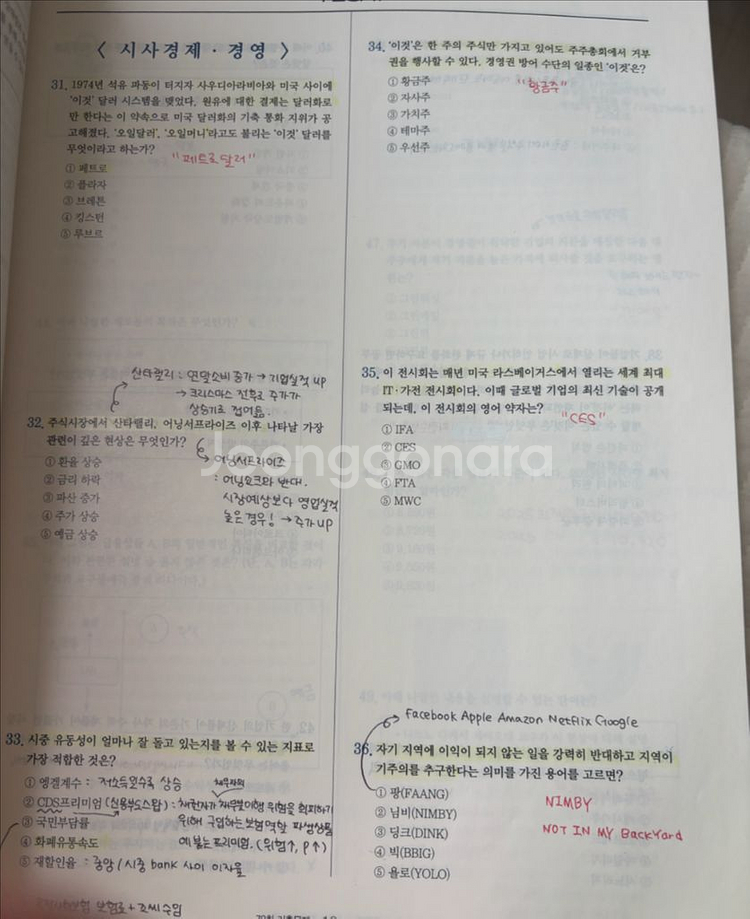 〈 시사경제 · 경영 〉
31. 1974년 석유 파동이 터지자 사우디아라비아와 미국 사이에
'이것' 달러 시스템을 맺었다. 원유에 대한 결제는 달러화로
만 한다는 이 약속으로 미국 달러화의 기축 통화 지위가 공
고해졌다. '오일달러', '오일머니'라고도 불리는 '이것' 달러를
무엇이라고 하는가?
"페트로달러"
① 페트로
② 플라자
③ 브레튼
④ 킹스턴
⑤ 루브르
산타랠리 : 연말소비 증가 → 기업실적 up
→ 크리스마스 전후로 주가가
상승기로 접어듦.
32. 주식시장에서 산타랠리, 어닝서프라이즈 이후 나타날 가장
관련이 깊은 현상은 무엇인가?
어닝서프라이즈
: 어닝쇼크와 반대.
시장예상보다 영업실적
높은 경우! → 주가 UP
① 환율 상승
② 금리 하락
③ 파산 증가
④ 주가 상승
⑤ 예금 상승
33. 시중 유동성이 얼마나 잘 돌고 있는지를 볼 수 있는 지표로
가장 적합한 것은?
① 엥겔계수 : 저소득일수록 상승
② CDS프리미엄 (신용부도스왑) : 채권자가 채무불이행 위험을 회피하기
위해 구입하는 보험역할 파생상품
③ 국민부담률
④ 화폐유통속도
에 붙는 프리미엄. (위험↑, P↑)
⑤ 재할인율 : 중앙 / 시중 bank 사이 이자율
보험료 + 조세수입
34. '이것'은 한 주의 주식만 가지고 있어도 주주총회에서 거부
권을 행사할 수 있다. 경영권 방어 수단의 일종인 '이것'은?
"황금주"
① 황금주
② 자사주
③ 가치주
④ 테마주
⑤ 우선주
35. 이 전시회는 매년 미국 라스베이거스에서 열리는 세계 최대
IT·가전 전시회이다. 이때 글로벌 기업의 최신 기술이 공개
되는데, 이 전시회의 영어 약자는?
"CES"
① IFA
② CES
③ GMO
④ FTA
⑤ MWC
Facebook Apple Amazon Netflix Google
36. 자기 지역에 이익이 되지 않는 일을 강력히 반대하고 지역이
기주의를 추구한다는 의미를 가진 용어를 고르면?
① 팡(FAANG)
② 님비(NIMBY)
③ 딩크(DINK)
④ 빅(BBIG)
⑤ 욜로(YOLO)
NIMBY
NOT IN MY BackYard
Joonggonara